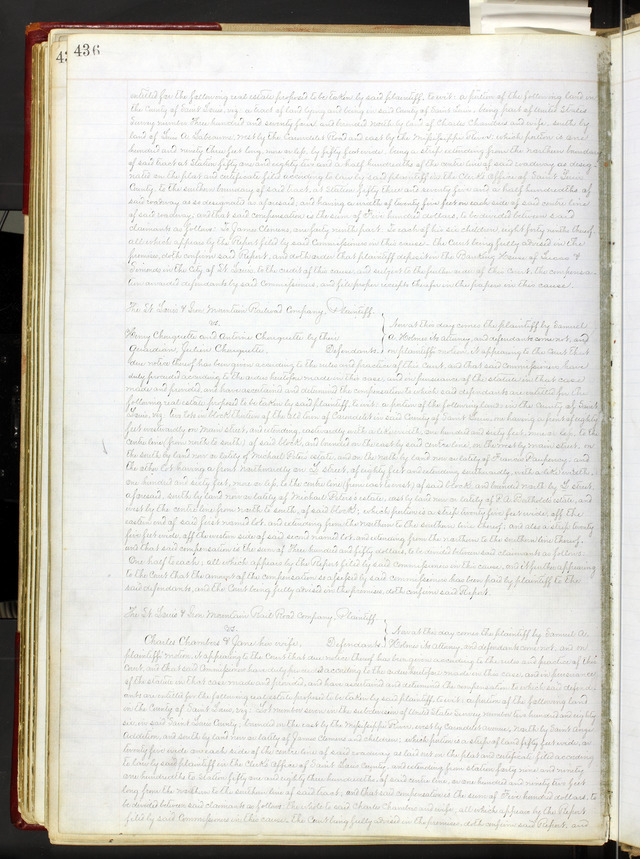 436
entitled for the following real estate proposed to be taken by said plaintiff, to wit: a portion of the following land in
the County of Saint Louis, viz: a tract of land lying and being in said County of Saint Louis, being part of United States
Survey number three hundred and seventy four, and bounded north by land of Charles Chambers and wife, south by
land of A. west by the Carondelet Road and east by the Mississippi River, which portion is one
hundred and ninety three feet long, more or less, by fifty feet wide, being a strip extending from the northern boundary
of said tract at Station fifty one and eighty two and a half hundredths of the centre line of said roadway as desig-
nated on the plat and certificate filed according to law by said plaintiff in the Clerk's office of Saint Louis
County, to the southern boundary of said tract, at Station fifty three and seventy five and a half hundredths of
said roadway as designated as aforesaid, and having a width of twenty five feet on each side of said centre line
of said roadway, and that said compensation is the sum of Five hundred dollars, to be divided between said
claimants as follows: to James Clemens, one forty ninth part. To each of his six children, eight forty ninths thereof,
all which appears by the Report filed by said Commissioners in this cause. The Court being fully advised in the
premises, doth confirm said Report, and doth order that plaintiff deposit in the Banking House of Lucas &
Simonds in the City of St. Louis, to the credit of this cause, and subject to the further order of this Court, the compensa-
tion awarded defendants by said Commissioners, and file proper receipts therefor in the papers in this cause.
The St. Louis & Iron Mountain Railroad Company, Plaintiff
vs.
Henry Chouquette and Antoine Chouquette by their
Guardian, Julien Chouquette, Defendants.
Now at this day comes the plaintiff by Samuel
A. Holmes its attorney, and defendants come not, and
on plaintiff's motion, it appearing to the Court that
due notice thereof has been given according to the rules and practice of this Court, and that said Commissioners have
duly proceeded according to the orders heretofore made in this case, and in pursuance of the statute in that case
made and provided, and have ascertained and determined the compensation to which said defendants are entitled for the
following real estate proposed to be taken by said plaintiff, to wit: a portion of the following land in the County of Saint
Louis, viz: two lots in block thirteen of the old town of Carondelet in said County of Saint Louis, one having a front of eighty
feet eastwardly on Main street, and extending eastwardly with a like width, one hundred and sixty feet, more or less, to the
centre line (from north to south) of said block, and bounded on the east by said centre line, on the west by main street, on
the south by land now or lately of Michael Peters' estate, and on the north by land now or lately of Francis and
the other lot having a front northwardly on street, of eighty feet and extending southwardly, with a like width,
one hundred and sixty feet, more or less, to the centre line (from east to west) of said block, and bounded north by street
aforesaid, south by land now or lately of Michael Peters' estate, east by land now or lately of estate, and
west by the centre line from north to south, of said block; which portion is a strip twenty five feet wide, off the
eastern end of said first named lot, and extending from the northern to the southern line thereof; and also a strip twenty
five feet wide, off the western side of said second named lot, and extending from the northern to the southern line thereof,
and that said compensation is the sum of Three hundred and fifty dollars, to be divided between said claimants as follows:
One half to each; all which appears by the Report filed by said Commissioners in this cause, and it further appearing
to the Court that the amount of the compensation so assessed by said Commissioners has been paid by plaintiff to the
said defendants, and the Court being fully advised in the premises, doth confirm said Report.
The St. Louis & Iron Mountain Rail Road Company, Plaintiff
vs.
Charles Chambers & Jane his wife, Defendants.
Now at this day comes the plaintiff by Samuel A.
Holmes its attorney, and defendants come not, and on
plaintiff's motion, it appearing to the Court that due notice thereof has been given according to the rules and practice of this
Court, and that said Commissioners have duly proceeded according to the orders heretofore made in this case, and in pursuance
of the statute in that case made and provided, and have ascertained and determined the compensation to which said defend-
ants are entitled for the following real estate proposed to be taken by said plaintiff, to wit: a portion of the following land
in the County of Saint Louis, viz: Lot number seven in the subdivision of United States survey number two hundred and eighty
six in said Saint Louis County, bounded on the east by the Mississippi River, west by Carondelet avenue, north by Saint
Addition, and south by land now or lately of James Clemens and children; which portion is a strip of land fifty feet wide, or
twenty five wide on each side of the centre line of said roadway as laid out on the plat and certificate filed according
to law by said plaintiff in the Clerk's office of Saint Louis County, and extending from station forty nine and ninety
one hundredths to Station fifty one and eighty three hundredths of said centre line, or one hundred and ninety two feet
long from the northern to the southern line of said tract, and that said compensation is the sum of Five hundred dollars, to
be divided between said claimants as follows: The whole to said Charles Chambers and wife, all which appears by the Report
filed by said Commissioners in this cause. The Court being fully advised in the premises, doth confirm said Report, and